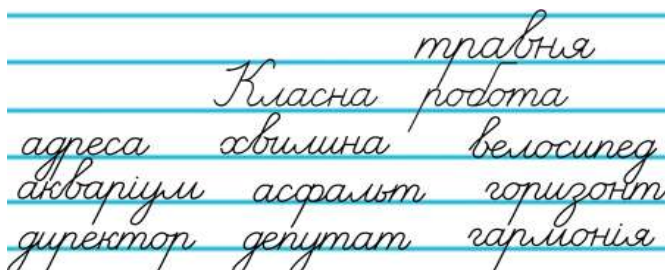 травня
Класна робота
адреса хвилина велосипед
акваріум асфальт горизонт
директор депутат гармонія